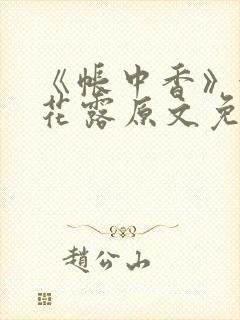 《帐中香》
花露原文免
趙公山